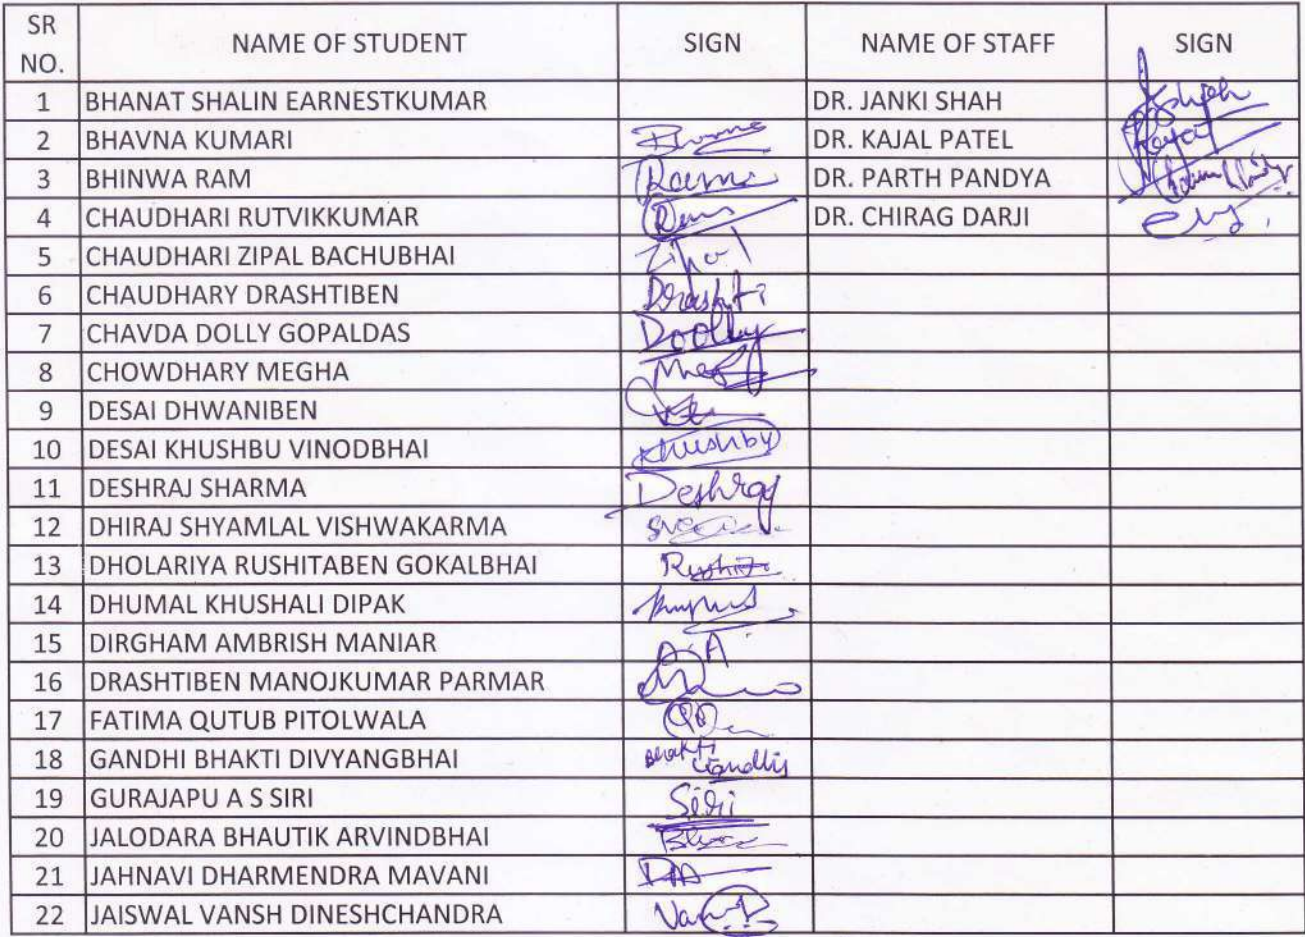 SR NO. NAME OF STUDENT SIGN NAME OF STAFF SIGN
1 BHANAT SHALIN EARNESTKUMAR DR. JANKI SHAH
2 BHAVNA KUMARI DR. KAJAL PATEL
3 BHINWA RAM DR. PARTH PANDYA
4 CHAUDHARI RUTVIKKUMAR DR. CHIRAG DARJI
5 CHAUDHARI ZIPAL BACHUBHAI Zipal
6 CHAUDHARY DRASHTIBEN Drashti
7 CHAVDA DOLLY GOPALDAS Doolly
8 CHOWDHARY MEGHA
9 DESAI DHWANIBEN
10 DESAI KHUSHBU VINODBHAI Khushby
11 DESHRAJ SHARMA Deshraj
12 DHIRAJ SHYAMLAL VISHWAKARMA
13 DHOLARIYA RUSHITABEN GOKALBHAI
14 DHUMAL KHUSHALI DIPAK
15 DIRGHAM AMBRISH MANIAR
16 DRASHTIBEN MANOJKUMAR PARMAR
17 FATIMA QUTUB PITOLWALA
18 GANDHI BHAKTI DIVYANGBHAI Bhakti Gandhi
19 GURAJAPU A S SIRI Siri
20 JALODARA BHAUTIK ARVINDBHAI
21 JAHNAVI DHARMENDRA MAVANI
22 JAISWAL VANSH DINESHCHANDRA